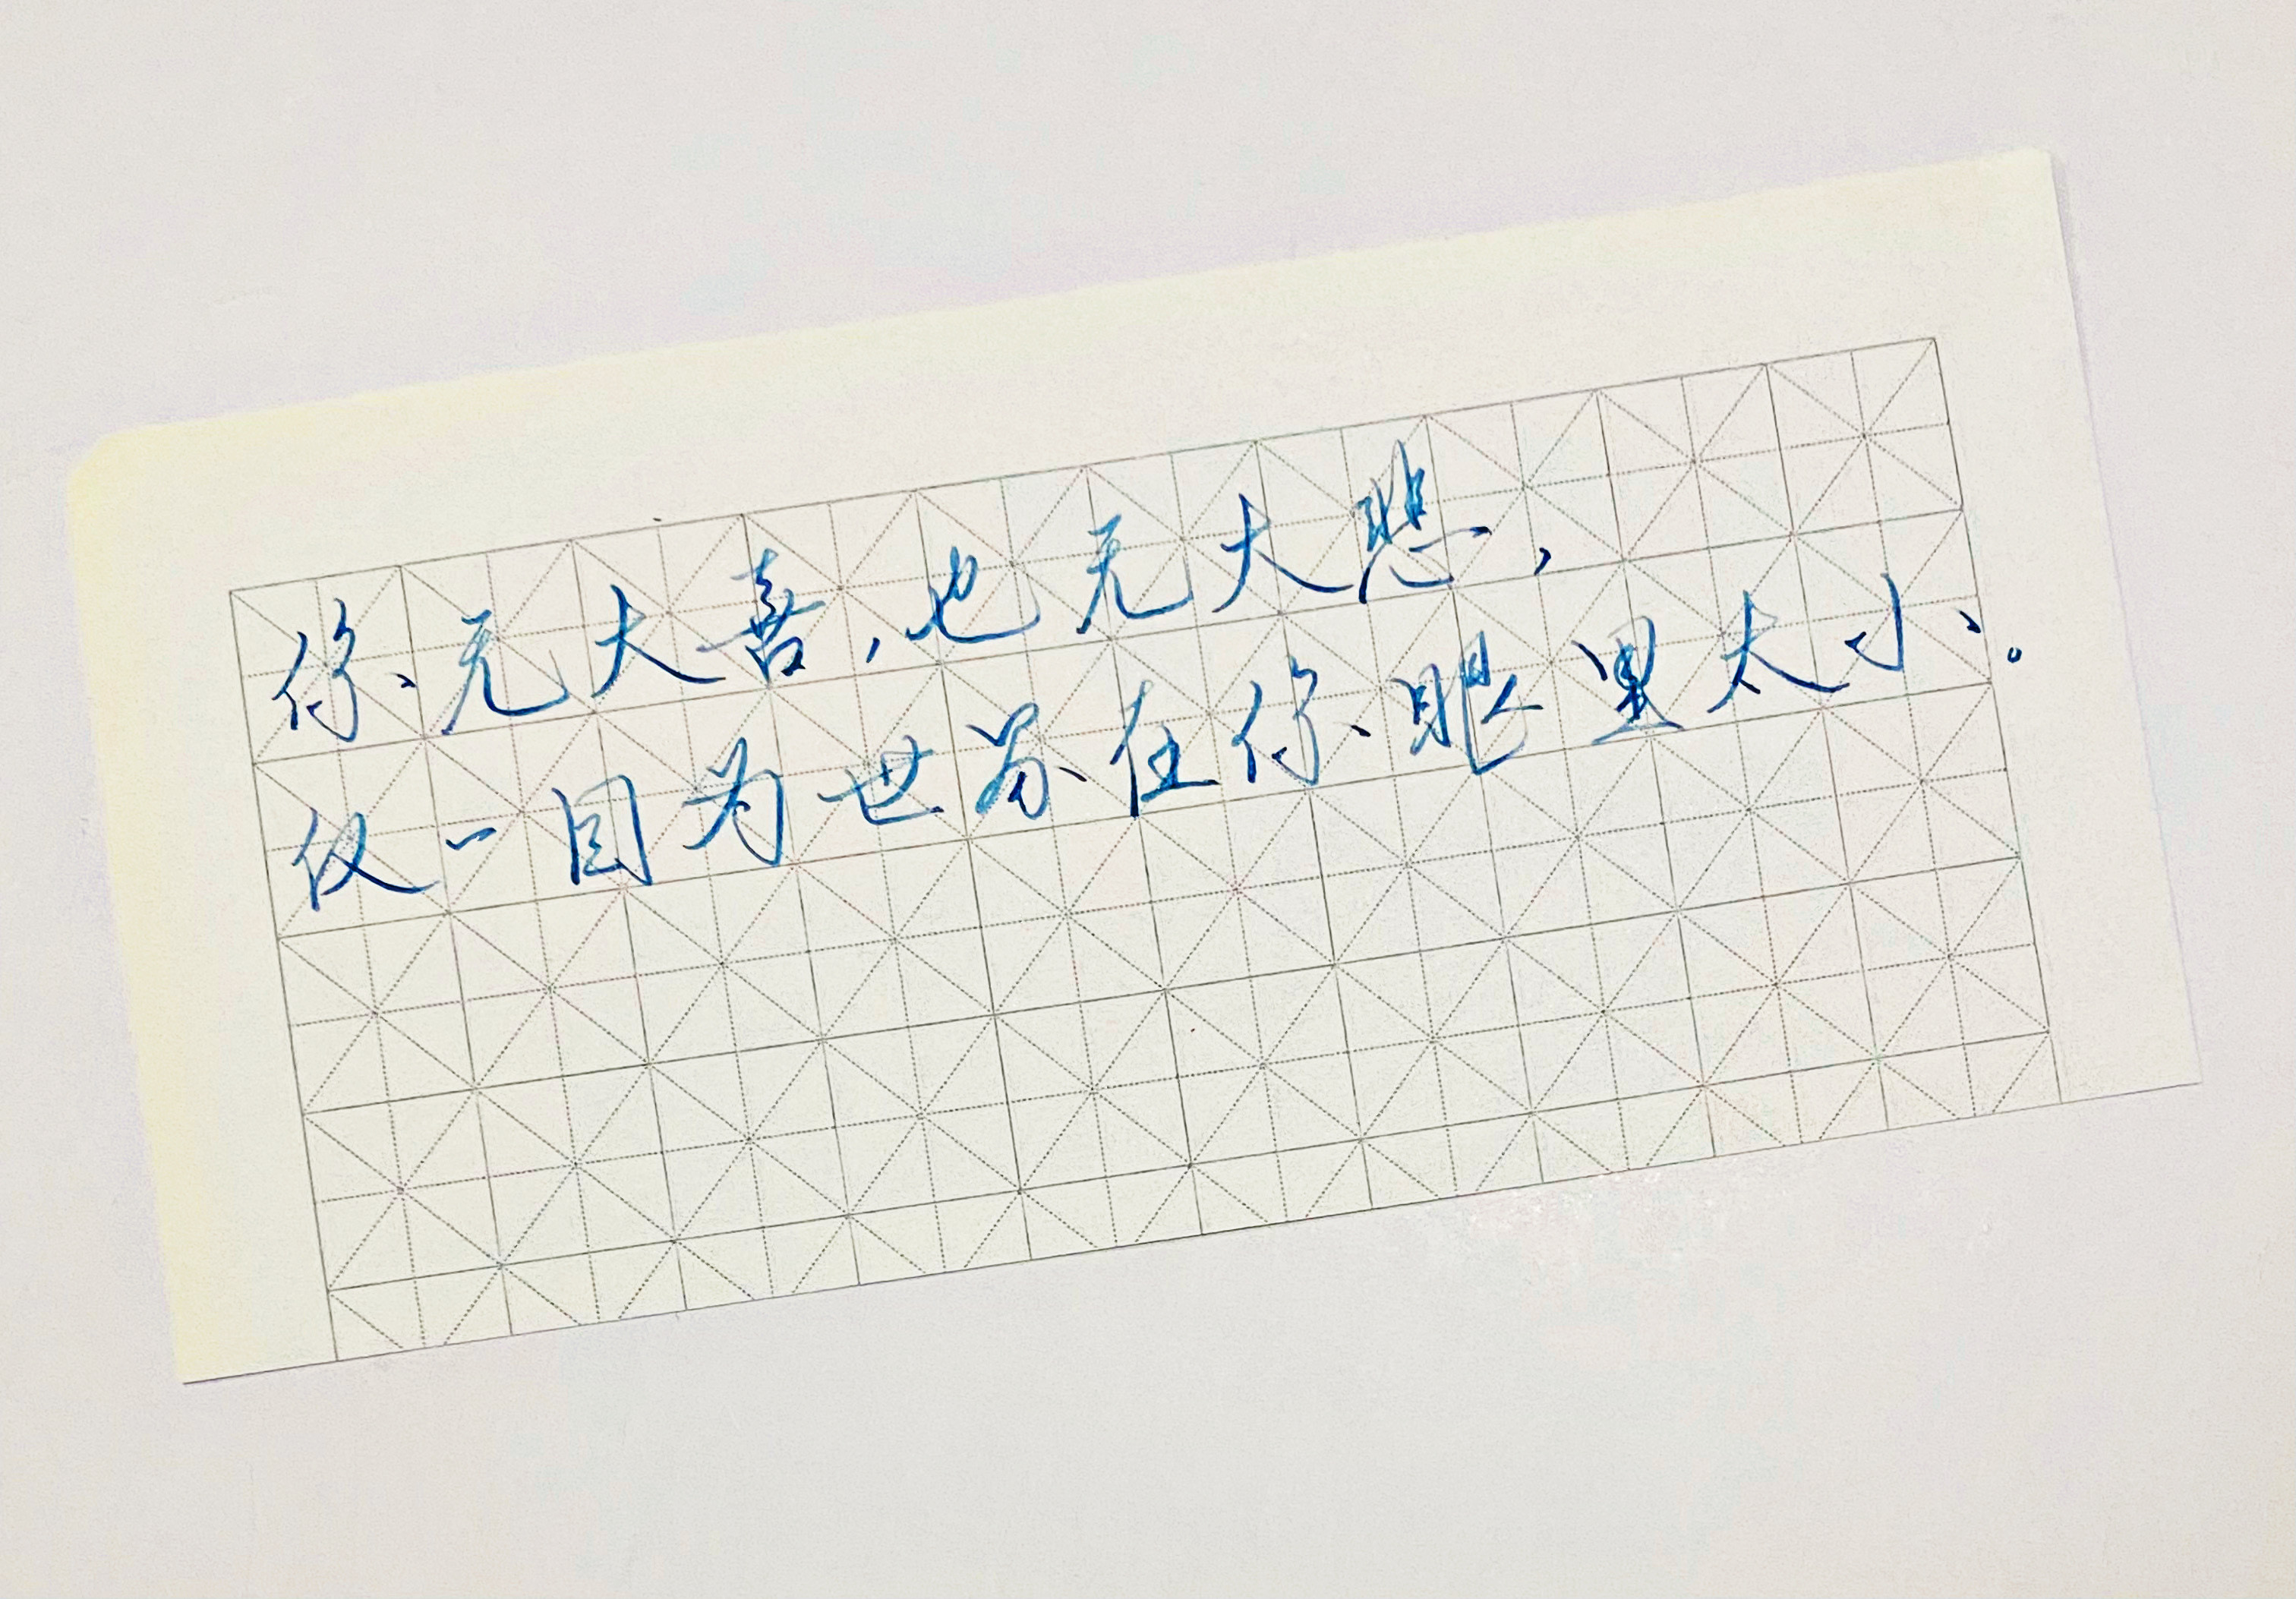 你无大喜,也无大悲,
仅一因为世界在你眼里太小。